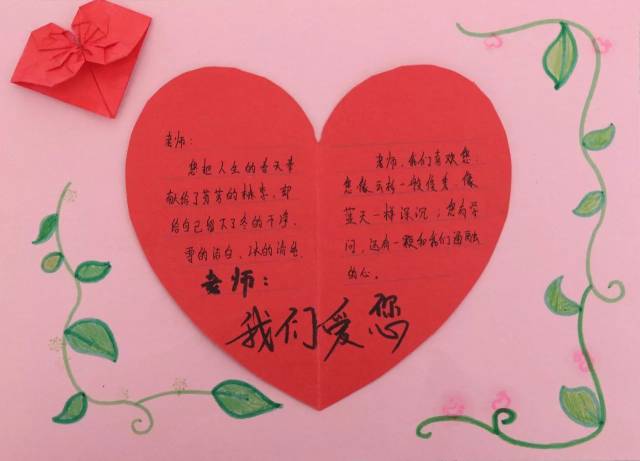 老师:
您把人生的春天奉
献给了芬芳的桃李，却
给自己留下了冬的干净、
雪的洁白、冰的清色
老师，我们喜欢您，
您像云杉一般俊秀，像
蓝天一样深沉；您有学
问，还有一颗和我们通融
的心。
老师:
我们爱您